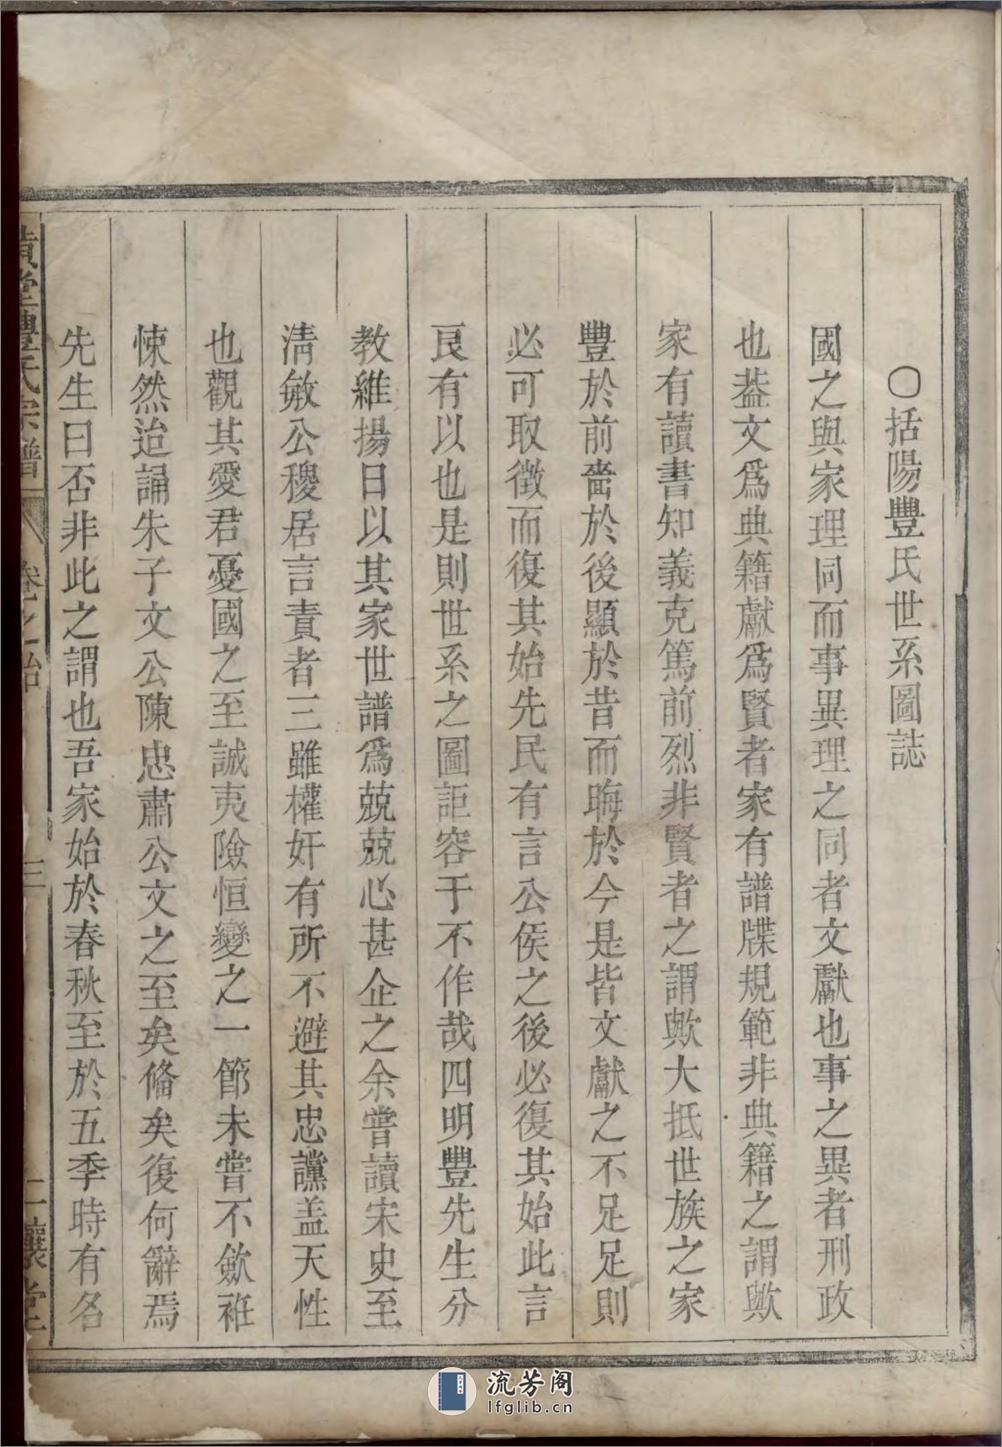 〇括陽豐氏世系圖誌
國之與家理同而事異理之同者文獻也事之異者刑政
也葢文爲典籍獻爲賢者家有譜牒規範非典籍之謂歟
家有讀書知義克篤前烈非賢者之謂歟大抵世族之家
豐於前嗇於後顯於昔而晦於今是皆文獻之不足足則
必可取徵而復其始先民有言公侯之後必復其始此言
良有以也是則世系之圖詎容于不作哉四明豐先生分
教維揚日以其家世譜爲兢兢心甚企之余嘗讀宋史至
淸敏公稷居言責者三雖權奸有所不避其忠讜盖天性
也觀其愛君憂國之至誠夷險恒變之一節未嘗不歛袵
悚然迨誦朱子文公陳忠肅公文之至矣俻矣復何辭焉
先生曰否非此之謂也吾家始於春秋至於五季時有名
堂豐氏宗譜 卷之 三
流芳阁
lfglib.cn